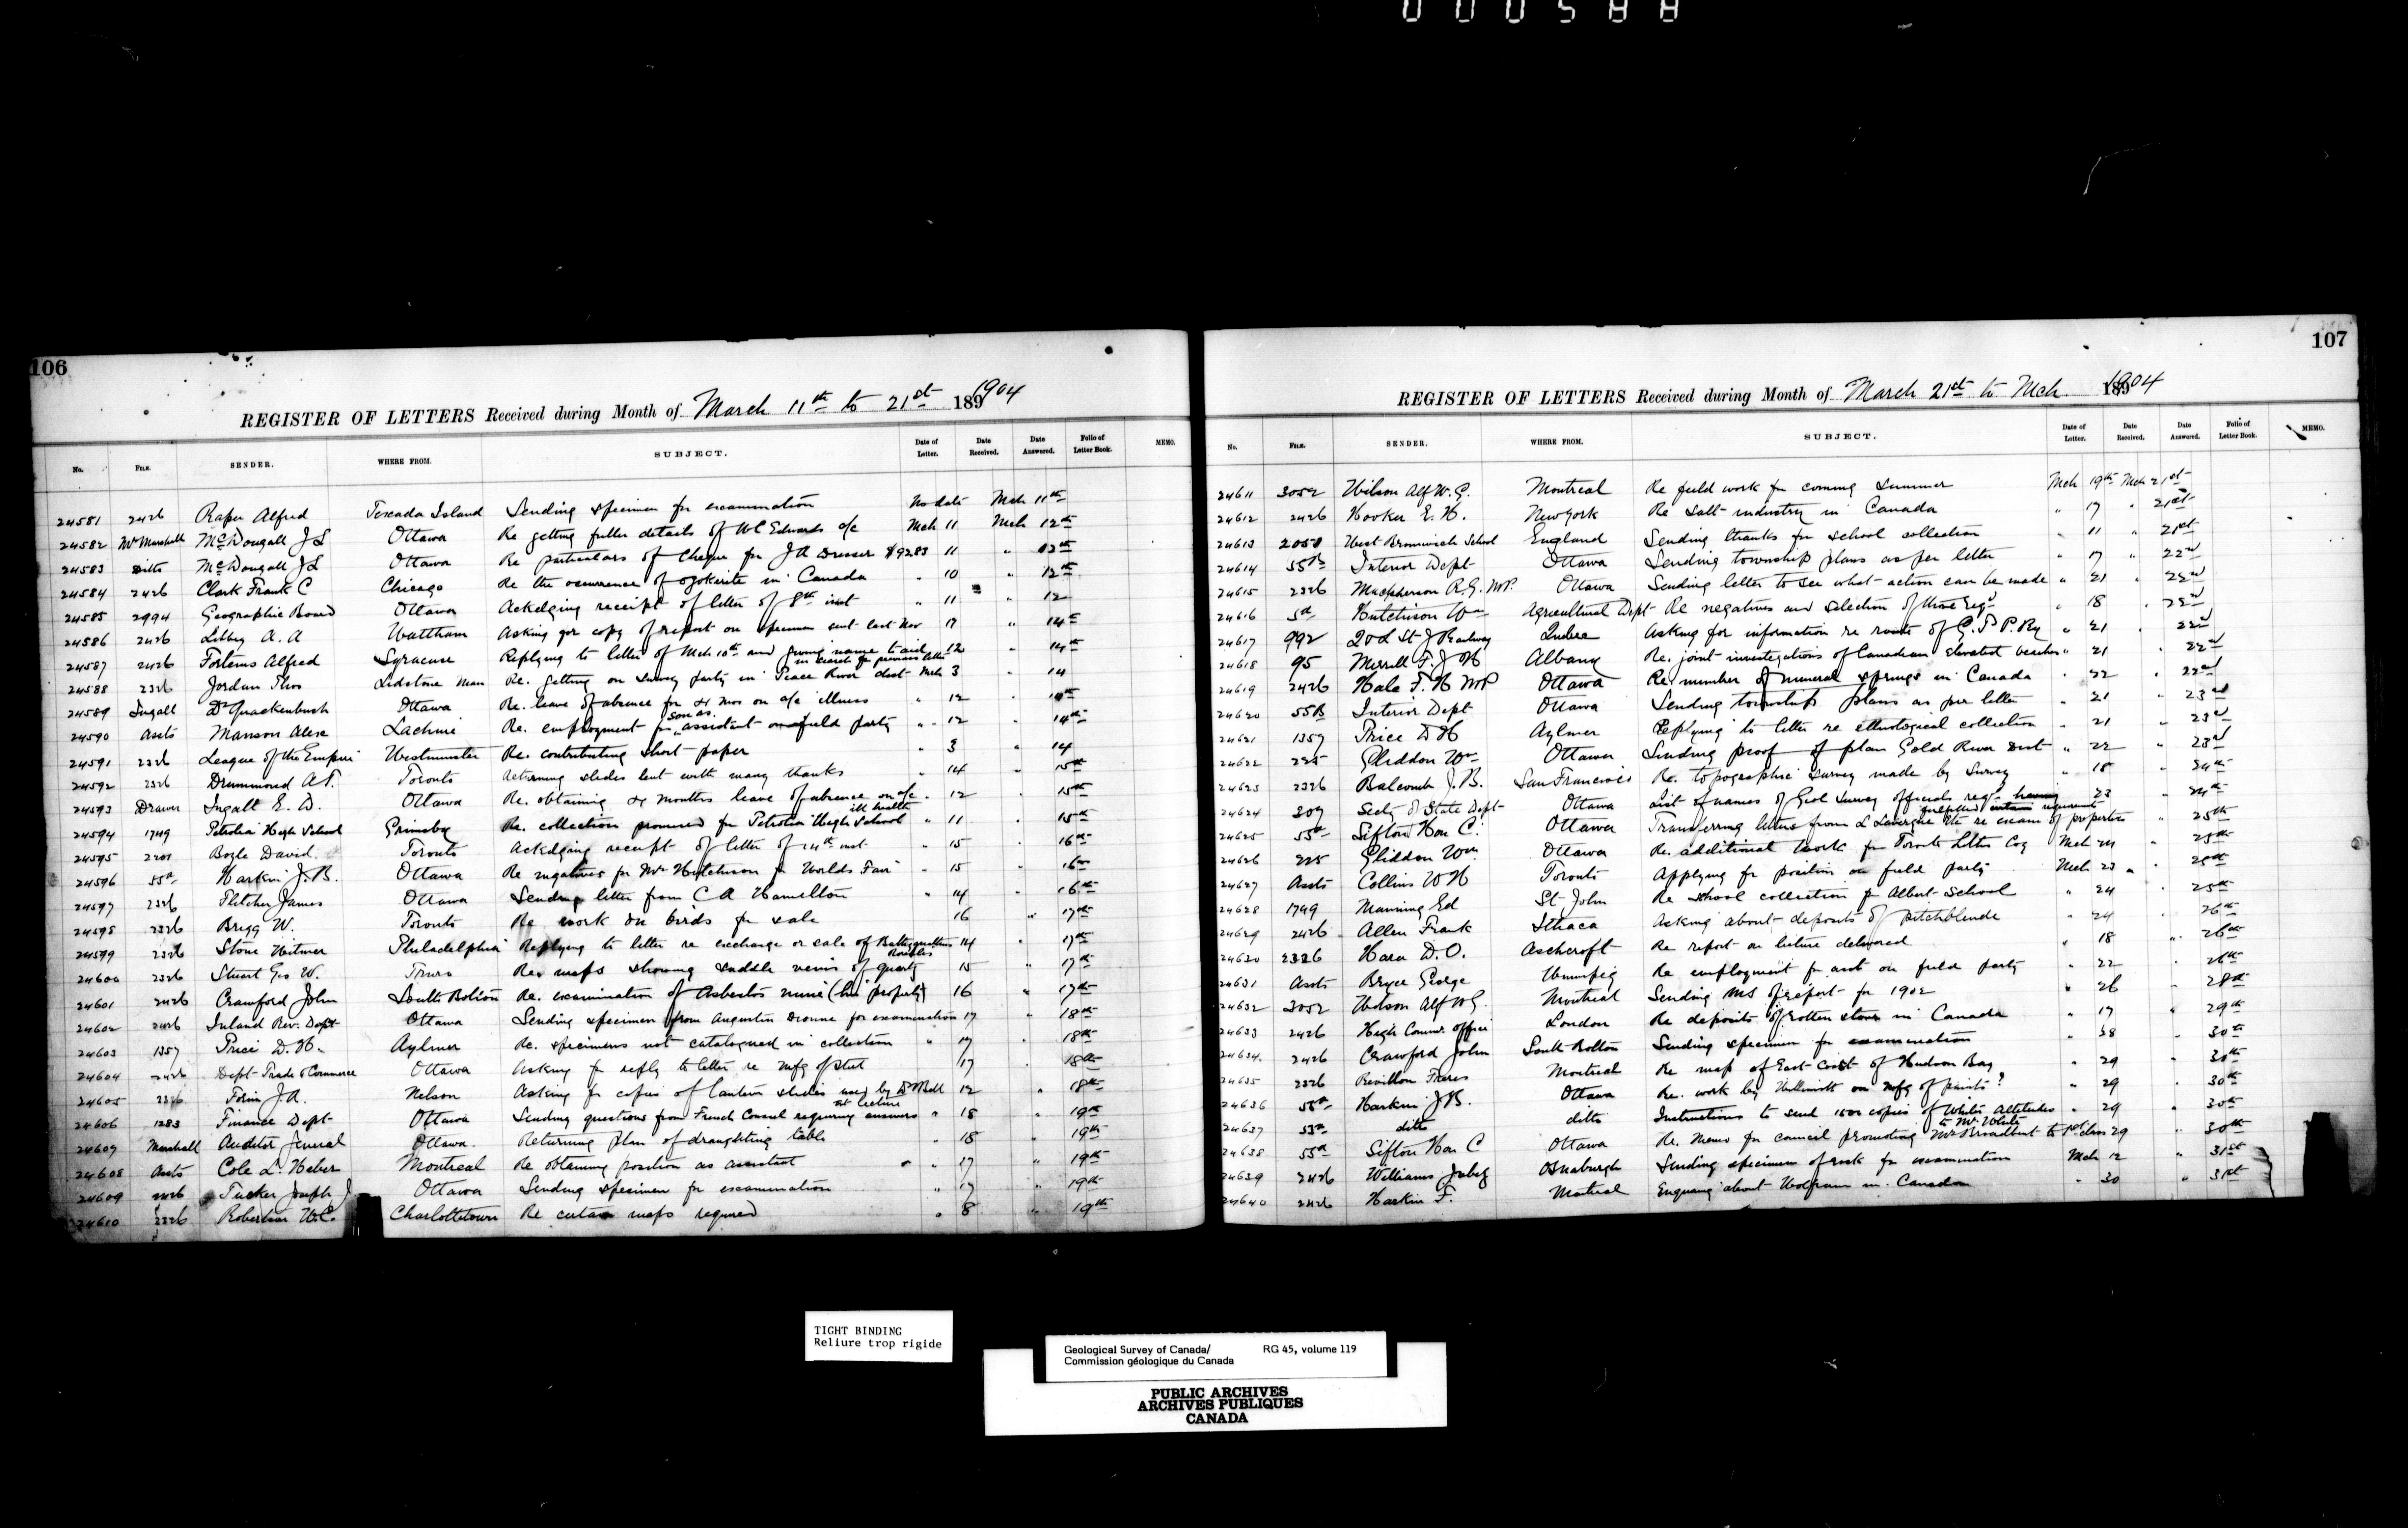 000588
106
REGISTER OF LETTERS Received during Month of March 11th to 21st 1891904
No. FILE. SENDER. WHERE FROM. SUBJECT. Date of Letter. Date Received. Date Answered. Folio of Letter Book. MEMO.
24581 2426 Raper Alfred Texada Island Sending specimen for examination No date Mch 11th
24582 Mr Marshall McDougall J L Ottawa Re getting fuller details of W C Edwards a/c Mch 11 Mch 12th
24583 ditto McDougall J L Ottawa Re particulars of Cheque for J A Dresser $9283 11 " 12th
24584 2426 Clark Frank C Chicago Re the occurrence of ozokerite in Canada " 10 " 12th
24585 2994 Geographic Board Ottawa Ackedging receipt of letter of 8th inst " 11 " 12
24586 2426 Libbey A. A Waltham Asking for copy of report on specimen sent last Nov " 14th
24587 2426 Fortems Alfred Syracuse Replying to letter of Mch 10th and giving name to aid in search of previous letter 12 " 14th
24588 2326 Jordan Thos Lidstone Man Re. getting on Survey party in Peace River dist Mch 3 " 14
24589 Ingall Dr Quackenbush Ottawa Re. leave of absence for mos on a/c illness " 12 "
24590 Assts Manson Alex Lachine Re. employment for son as assistant on field party " 12 " 14th
24591 2326 League of the Empire Westminster Re. contributing short paper " 3 " 14
24592 2326 Drummond A T. Toronto Returning slides lent with many thanks " 14 " 15th
24593 Drawer Ingall E. D. Ottawa Re. obtaining months leave of absence on a/c ill health " 12 " 15th
24594 1749 Petrolia High School Grimsby Re. collection promised for Petrolia High School " 11 " 15th
24595 2201 Boyle David Toronto Ackedging receipt of letter of 14th inst " 15 " 16th
24596 55a Harkin J. B. Ottawa Re negatives for Mr Hutchison for Worlds Fair " 15 " 16th
24597 2326 Fletcher James Ottawa Sending letter from C A Hamilton " 14 " 16th
24598 2326 Brigg W. Toronto Re work on birds for sale 16 " 17th
24599 2326 Stone Witmer Philadelphia Replying to letter re exchange or sale of 14 " 17th
24600 2326 Stuart Geo W. Truro Re. maps showing saddle veins of quartz 15 " 17th
24601 2426 Crawford John South Bolton Re. examination of Asbestos mine (his property) 16 " 17th
24602 2426 Inland Rev. Dept Ottawa Sending specimen from Augustin Dionne for examination 17 " 18th
24603 1357 Price D. H. Aylmer Re. specimens not catalogued in collection " 17 " 18th
24604 2426 Dept Trade & Commerce Ottawa Asking for reply to letter re mfg of steel 17 " 18th
24605 2326 Forin J. A. Nelson Asking for copies of lantern slides used by Dr Bell at lecture 12 " 18th
24606 1283 Finance Dept Ottawa Sending questions from French Consul requiring answers " 18 " 19th
24607 Marshall Auditor General Ottawa. Returning plan of draughting table " 18 " 19th
24608 Assts Cole L. Heber Montreal Re obtaining position as assistant " 17 " 19th
24609 2426 Tucker Joseph J Ottawa Sending specimen for examination " 17 " 19th
24610 2326 Robertson W. C. Charlottetown Re certain maps required " 8 " 19th
107
REGISTER OF LETTERS Received during Month of March 21st to Mch. 1891904
No. FILE. SENDER. WHERE FROM. SUBJECT. Date of Letter. Date Received. Date Answered. Folio of Letter Book. MEMO.
24611 3052 Wilson Alf W. G. Montreal Re field work for coming Summer Mch 19th Mch 21st
24612 2426 Hooker E. H. New York Re Salt industry in Canada " 17 " 21st
24613 2051 West Bromwich School England Sending thanks for school collection " 11 " 21st
24614 55B Interior Dept Ottawa Sending township plans as per letter " 17 " 22nd
24615 2326 Macpherson R. G. MP. Ottawa Sending letter to see what action can be made " 21 " 22nd
24616 5a Hutchison Wm Agricultural Dept Re negatives and selection of those reqd " 18 " 22nd
24617 992 Q & L St J Railway Quebec Asking for information re route of G. T P. Ry " 21 " 22nd
24618 95 Merrill F. J H Albany Re. joint investigations of Canadian elevated beaches " 21 " 22nd
24619 2426 Hale F. H MP Ottawa Re. number of mineral springs in Canada " 22 " 22nd
24620 55B Interior Dept Ottawa Sending township plans as per letter " 21 " 23rd
24621 1357 Price D H Aylmer Replying to letter re ethnological collection " 21 " 23rd
24622 225 Gliddon Wm Ottawa Sending proof of plan Gold River Dist " 22 " 23rd
24623 2326 Balcomb J. B. San Francisco Re. topographic survey made by Survey " 18 " 24th
24624 309 Secty of State Dept Ottawa List of names of Geol Survey officials reqd " 23 " 24th
24625 55a Sifton Hon C. Ottawa Transferring letter from L Lavergne Etc re exam of properties " 25th
24626 225 Gliddon Wm Ottawa Re. additional work for Toronto Litho Coy Mch 24 " 25th
24627 Assts Collins W H Toronto Applying for position on field party Mch 23 " 25th
24628 1749 Manning Ed St John Re school collection for Albert School " 24 " 25th
24629 2426 Allen Frank Ithaca Asking about deposits of pitchblende " 24 " 26th
24630 2326 Hara D. O. Aschcroft Re report on lecture delivered " 18 " 26th
24631 Assts Bryce George Winnipeg Re employment for asst on field party " 22 " 26th
24632 3052 Wilson Alf W G. Montreal Sending MS of report for 1902 " 26 " 28th
24633 2426 High Commr office London Re deposits of rotten stone in Canada " 17 " 29th
24634 2426 Crawford John South Bolton Sending specimen for examination " 28 " 30th
24635 2326 Revillon Freres Montreal Re map of East Coast of Hudson Bay " 29 " 30th
24636 55a Harkin J B. Ottawa Re. work by Willimott on mfg of paints? " 29 " 30th
24637 53a ditto ditto Instructions to send 1500 copies of Whites Altitudes to Mr. White " 29 " 30th
24638 55a Sifton Hon C Ottawa Re. Memo for council promoting Mr Broadbent to 1st class 29 " 30th
24639 2426 Williams Jabez Osnaburgh Sending specimen of rock for examination Mch 12 " 31st
24640 2426 Harkin F. Montreal Enquiring about Wolfram in Canada " 30 " 31st
TIGHT BINDING
Reliure trop rigide
Geological Survey of Canada/ RG 45, volume 119
Commission géologique du Canada
PUBLIC ARCHIVES
ARCHIVES PUBLIQUES
CANADA